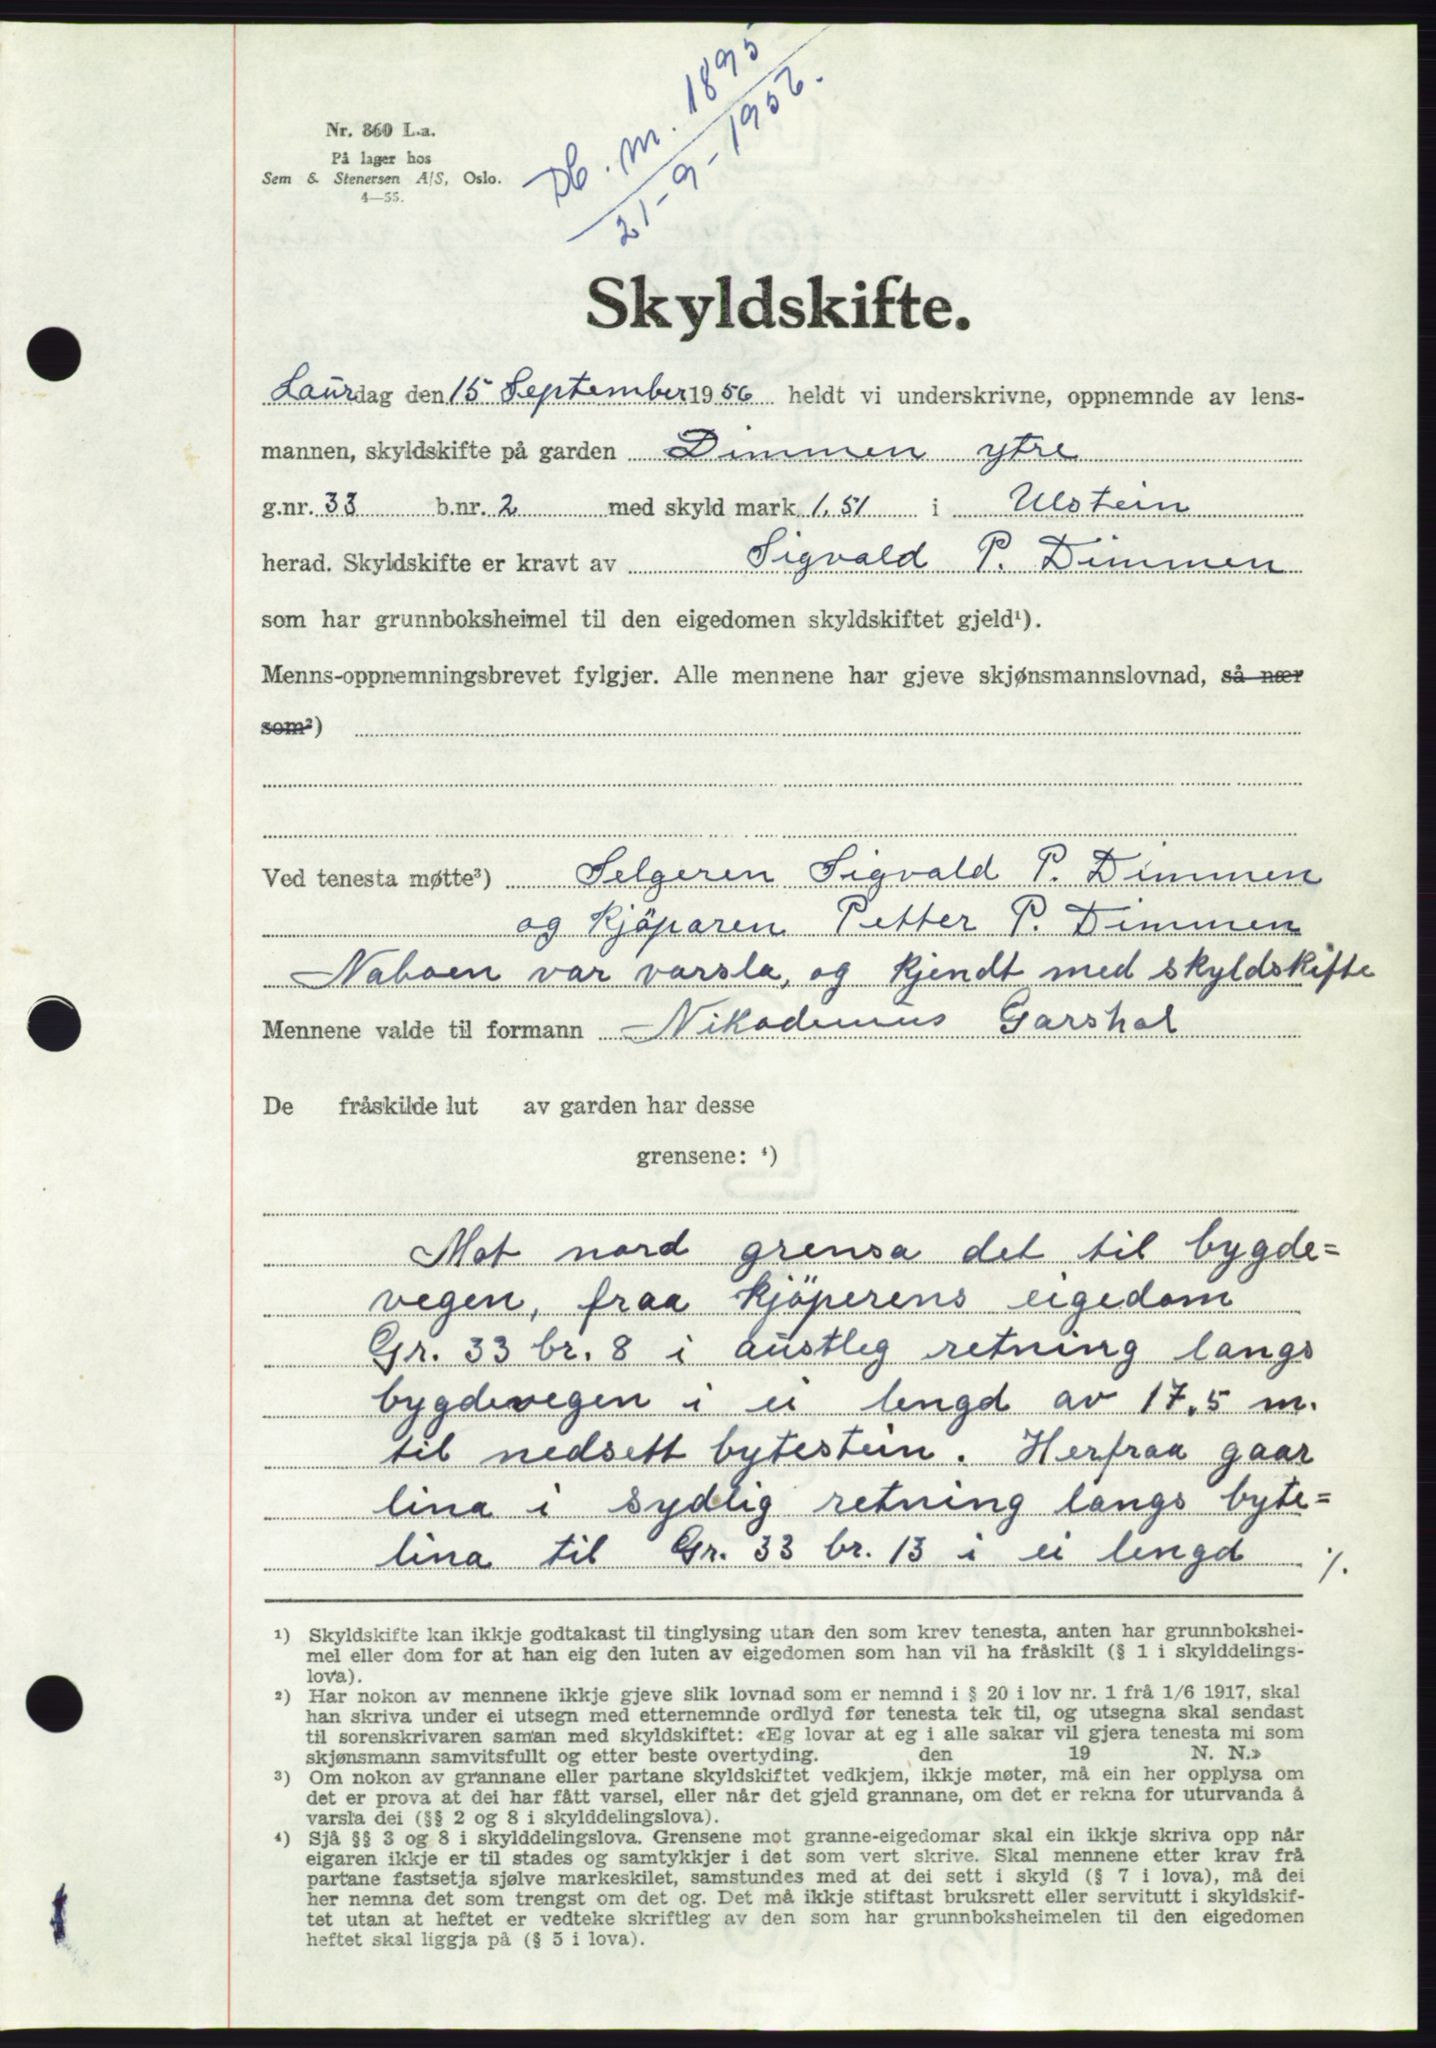 Db. nr. 1895
21-9-1956.
Nr. 860 L.a.
På lager hos
Sem & Stenersen A/S, Oslo.
4—55.
Skyldskifte.
Laurdag den 15 September 1956 heldt vi underskrivne, oppnemnde av lens-
mannen, skyldskifte på garden Dimmen ytre
g.nr. 33 b.nr. 2 med skyld mark 1.51 i Ulstein
herad. Skyldskifte er kravt av Sigvald P. Dimmen
som har grunnboksheimel til den eigedomen skyldskiftet gjeld¹).
Menns-oppnemningsbrevet fylgjer. Alle mennene har gjeve skjønsmannslovnad, så nær
som²)
Ved tenesta møtte³) Selgeren Sigvald P. Dimmen
og kjöparen Petter P. Dimmen
Naboen var varsla, og kjendt med skyldskifte
Mennene valde til formann Nikodemus Garshol
De fråskilde lut av garden har desse
grensene: ⁴)
Mot nord grensa det til bygde=
vegen, fraa kjöperens eigedom
Gr. 33 br. 8 i austleg retning langs
bygdevegen i ei lengd av 17.5 m.
til nedsett bytestein. Herfraa gaar
lina i sydlig retning langs byte=
lina til Gr. 33 br. 13 i ei lengd ·/.
¹) Skyldskifte kan ikkje godtakast til tinglysing utan den som krev tenesta, anten har grunnbokshei-
mel eller dom for at han eig den luten av eigedomen som han vil ha fråskilt (§ 1 i skylddelings-
lova).
²) Har nokon av mennene ikkje gjeve slik lovnad som er nemnd i § 20 i lov nr. 1 frå 1/6 1917, skal
han skriva under ei utsegn med etternemnde ordlyd før tenesta tek til, og utsegna skal sendast
til sorenskrivaren saman med skyldskiftet: «Eg lovar at eg i alle sakar vil gjera tenesta mi som
skjønsmann samvitsfullt og etter beste overtyding. den 19 N. N.»
³) Om nokon av grannane eller partane skyldskiftet vedkjem, ikkje møter, må ein her opplysa om
det er prova at dei har fått varsel, eller når det gjeld grannane, om det er rekna for uturvanda å
varsla dei (§§ 2 og 8 i skylddelingslova).
⁴) Sjå §§ 3 og 8 i skylddelingslova. Grensene mot granne-eigedomar skal ein ikkje skriva opp når
eigaren ikkje er til stades og samtykkjer i det som vert skrive. Skal mennene etter krav frå
partane fastsetja sjølve markeskilet, samstundes med at dei sett i skyld (§ 7 i lova), må dei
her nemna det som trengst om det og. Det må ikkje stiftast bruksrett eller servitutt i skyldskif-
tet utan at heftet er vedteke skriftleg av den som har grunnboksheimelen til den eigedomen
heftet skal liggja på (§ 5 i lova).